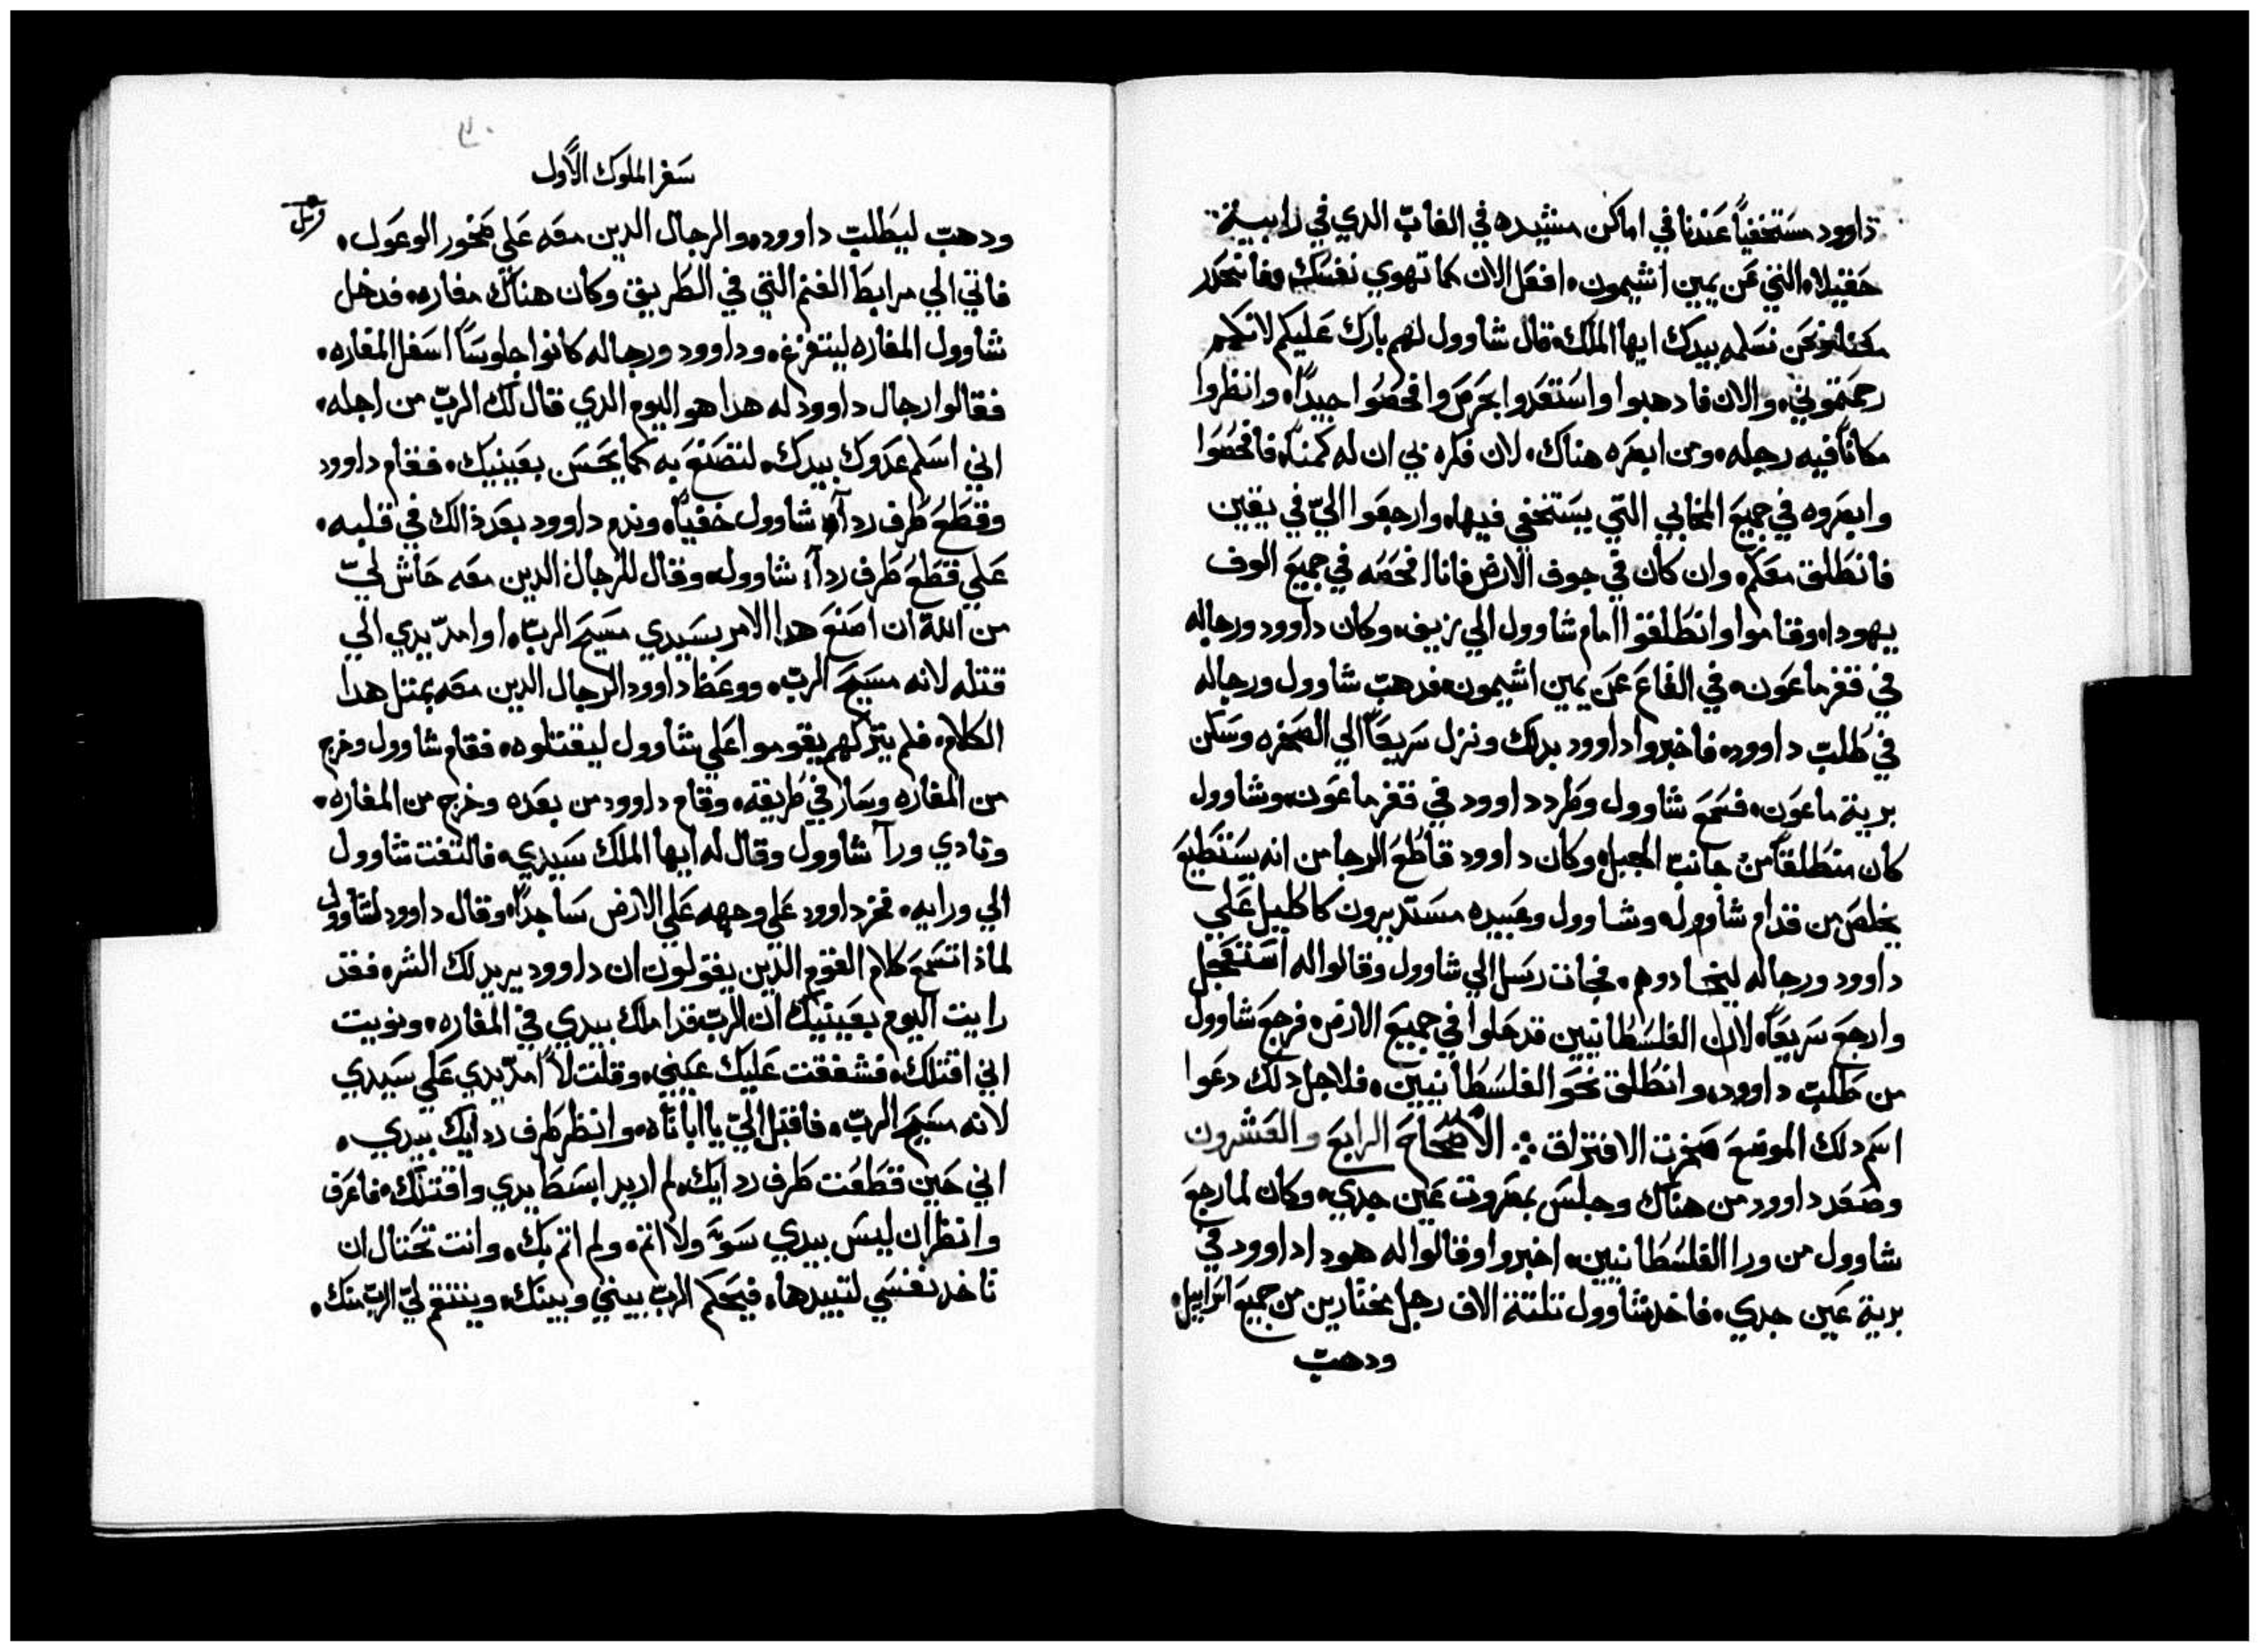 داوود مستخفياً عندنا في اماكن مشيده في الغاب الدي في رابية
حقيلاه التي عن يمين اشيمون، افعل الان كما تهوي نفسك، وانحدر
ونحن نسلمه بيدك ايها الملك، قال شاوول لهم بارك عليكم لانكم
رحمتموني، والان فادهبوا واستعدوا بحرص وافحصوا جيداً، وانظروا
مكاناً فيه رجله، ومن ابصره هناك، لان فكره بي ان له كمناً، فافحصوا
وابصروه في جميع المخابي التي يستخفي فيها، وارجعوا اليّ في يقين
فانطلق معكم، وان كان في جوف الارض فانا افحصه في جميع الوف
يهودا، وقاموا وانطلقوا امام شاوول الي زيف، وكان داوود ورجاله
في قفر ماعون، في القاع عن يمين اشيمون، فدهب شاوول ورجاله
في طلب داوود، فاخبروا داوود بدلك ونزل سريعاً الي الصخره وسكن
برية ماعون، فسمع شاوول وطرد داوود في قفر ماعون، وشاوول
كان منطلقاً من جانب الجبل، وكان داوود قاطع الرجا من انه يستطيع
يخلص من قدام شاوول، وشاوول وعبيده مستديرون كاكليل علي
داوود ورجاله ليخادوهم، فجات رسل الي شاوول وقالوا له استعجل
وارجع سريعاً، لان الفلسطانيين قد حلوا في جميع الارض، فرجع شاوول
من طلب داوود، وانطلق نحو الفلسطانيين، فلاجل دلك دعوا
اسم دلك الموضع صخرت الافتراق ❖ الاصحاح الرابع والعشرون
وصعد داوود من هناك وجلس بمصروت عين جدي، وكان لما رجع
شاوول من ورا الفلسطانيين، اخبروا وقالوا له هودا داوود في
برية عين جدي، فاخد شاوول تلتة الاف رجل مختارين من جميع اسراييل،
ودهب
سفر الملوك الاول
ودهب ليطلب داوود، والرجال الدين معه علي صخور الوعول،
فاتي الي مرابط الغنم التي في الطريق وكان هناك مغاره، فدخل
شاوول المغاره ليتفرغ، وداوود ورجاله كانوا جلوساً اسفل المغاره،
فقالوا رجال داوود له هدا هو اليوم الدي قال لك الرب من اجله،
اني اسلم عدوك بيدك، لتصنع به كما يحسن بعينيك، فقام داوود
وقطع طرف ردآء شاوول خفياً، وندم داوود بعد ذالك في قلبه،
علي قطع طرف ردآء شاوول، وقال للرجال الدين معه حاش ليّ
من الله ان اصنع هدا الامر بسيدي مسيح الرب، او امدّ يدي الي
قتله لانه مسيح الرب، ووعظ داوود الرجال الدين معه بمتل هدا
الكلام، فلم يتركهم يقوموا علي شاوول ليقتلوه، فقام شاوول وخرج
من المغاره وسار في طريقه، وقام داوود من بعده وخرج من المغاره،
ونادي ورآ شاوول وقال له ايها الملك سيدي، فالتفت شاوول
الي ورايه، فخر داوود علي وجهه علي الارض ساجداً، وقال داوود لشاوول
لماذا تسمع كلام القوم الدين يقولون ان داوود يريد لك الشر، فقد
رايت اليوم بعينيك ان الرب قد املك بيدي في المغاره، ونويت
اني اقتلك، فشفقت عليك عيني، وقلت لا امدّ يدي علي سيدي
لانه مسيح الرب، فاقبل اليّ يا اباتاه، وانظر طرف ردايك بيدي،
اني حين قطعت طرف ردايك، لم اريد ابسط يدي واقتلك، فاعرف
وانظر ان ليس بيدي سوء ولا اتم، ولم اتم بك، وانت تحتال ان
تاخد نفسي لتبيدها، فيحكم الرب بيني وبينك، وينتقم ليّ الرب منك،